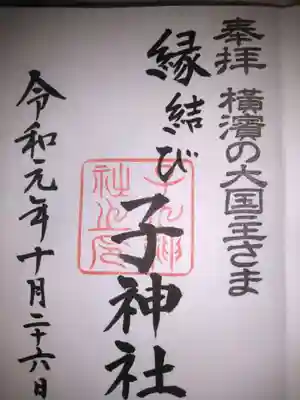 奉拝 横濱の大国主さま
縁結び 子神社
子九神社之印
令和元年十月二十六日